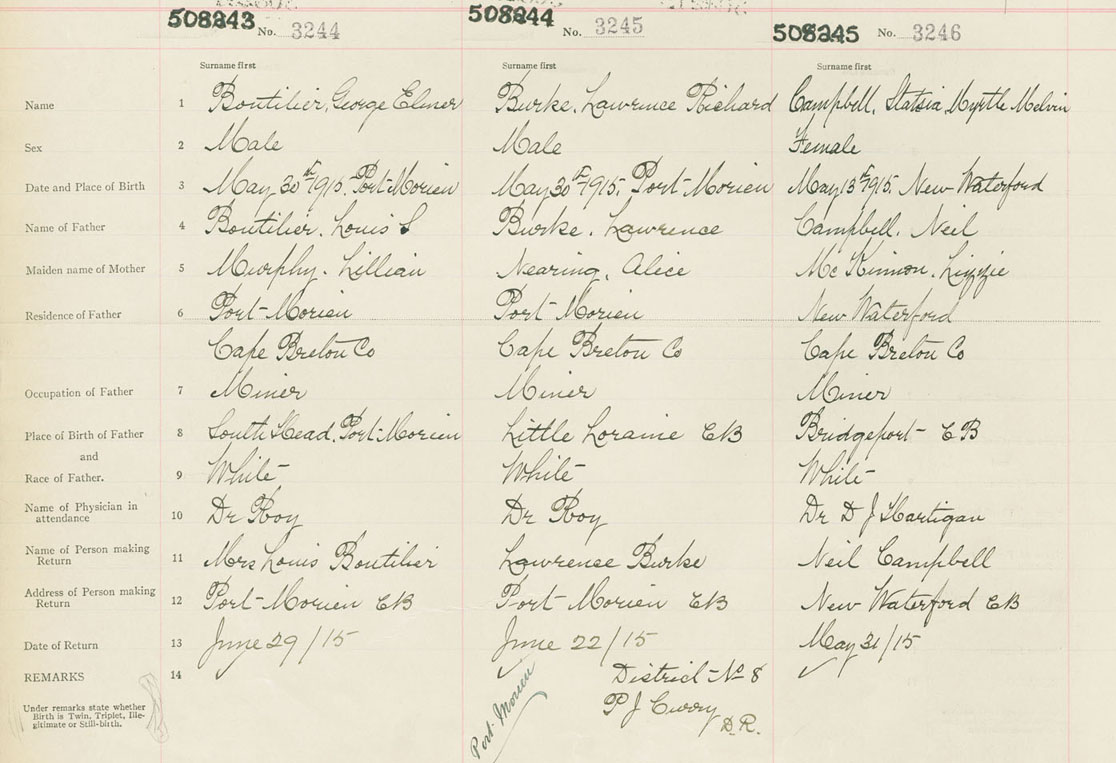 508243 No. 3244 508244 No. 3245 508245 No. 3246
Surname first Surname first Surname first
Name 1 Boutilier, George Elmer Burke, Lawrence Richard Campbell, Statsia Myrtle Melvin
Sex 2 Male Male Female
Date and Place of Birth 3 May 30th 1915. Port-Morien May 30th 1915. Port-Morien May 13th 1915. New Waterford
Name of Father 4 Boutilier, Louis S Burke, Lawrence Campbell, Neil
Maiden name of Mother 5 Murphy, Lillian Nearing, Alice McKinnon, Lizzie
Residence of Father 6 Port-Morien Port-Morien New Waterford
Cape Breton Co Cape Breton Co Cape Breton Co
Occupation of Father 7 Miner Miner Miner
Place of Birth of Father 8 South Head, Port-Morien Little Loraine CB Bridgeport CB
and
Race of Father. 9 White White White
Name of Physician in
attendance 10 Dr Roy Dr Roy Dr D J Hartigan
Name of Person making
Return 11 Mrs Louis Boutilier Lawrence Burke Neil Campbell
Address of Person making
Return 12 Port-Morien CB Port-Morien CB New Waterford CB
Date of Return 13 June 29/15 June 22/15 May 31/15
REMARKS 14 District No 8
Under remarks state whether
Birth is Twin, Triplet, Ille-
gitimate or Still-birth.
Port-Morien
P J Curry
D.R.